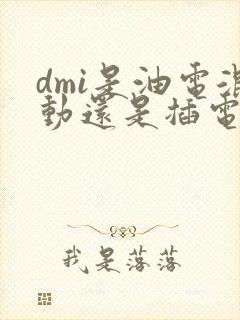 dmi是油電混
動還是插電
我是落落